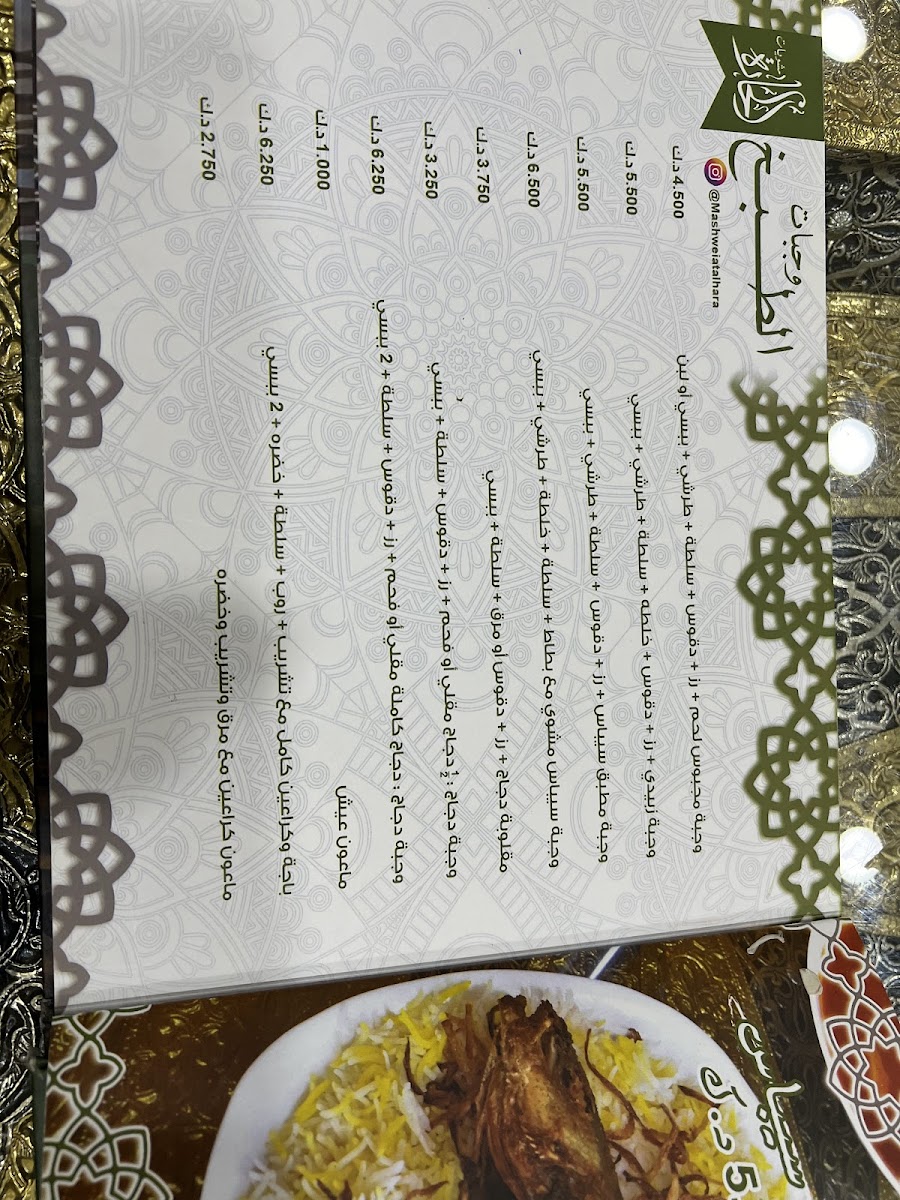 مشويات
الحارة
@Mashweiatalhara
وجبات
الطبخ
وجبة مجبوس لحم + رز + دقوس + سلطة + طرشي + ببسي أو لبن 4.500 د.ك
وجبة زبيدي + رز + دقوس + خلطه + سلطة + طرشي + ببسي 5.500 د.ك
وجبة مطبق سيباس + رز + دقوس + سلطة + طرشي + ببسي 5.500 د.ك
وجبة سيباس مشوي مع بطاط + سلطة + خلطة + طرشي + ببسي 6.500 د.ك
مقلوبة دجاج + رز + دقوس أو مرق + سلطة + ببسي 3.750 د.ك
وجبة دجاج : ½ دجاج مقلي أو فحم + رز + دقوس + سلطة + ببسي 3.250 د.ك
وجبة دجاج : دجاج كاملة مقلي أو فحم + رز + دقوس + سلطة + 2 ببسي 6.250 د.ك
ماعون عيش 1.000 د.ك
باجة وكراعين كامل مع تشريب + روب + سلطة + خضره + 2 ببسي 6.250 د.ك
ماعون كراعين مع مرق وتشريب وخضره 2.750 د.ك
5 د.ك